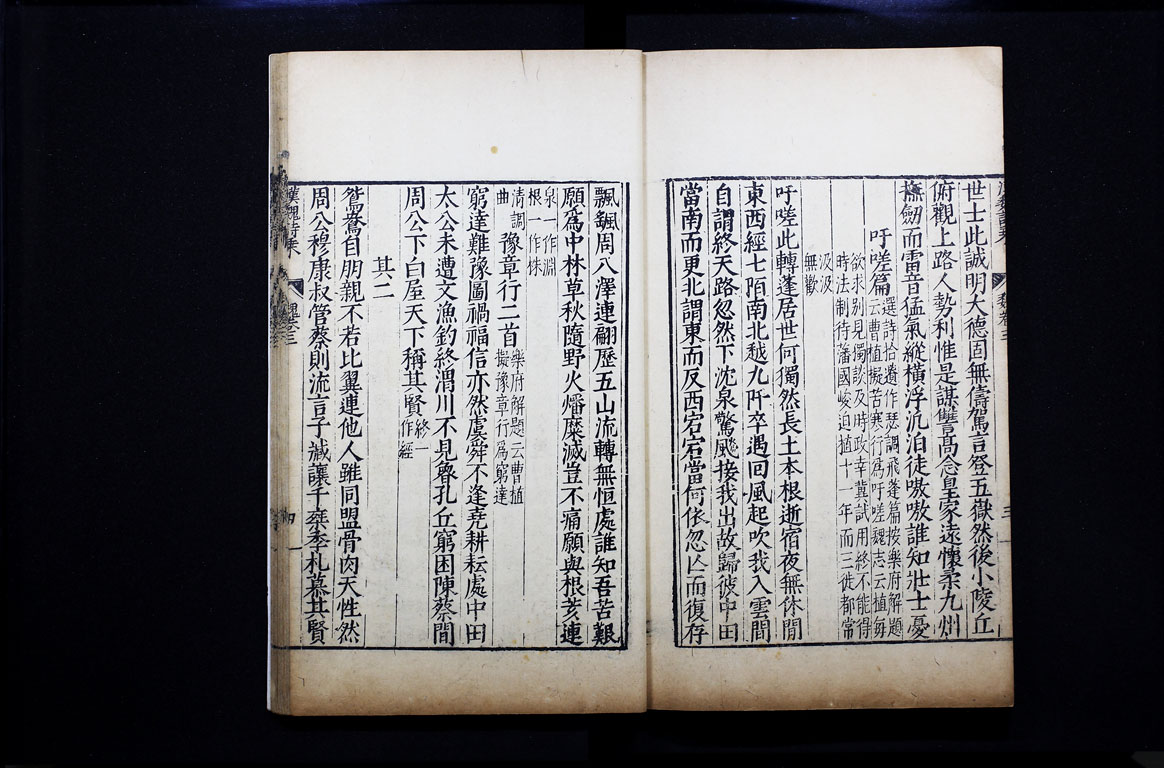 世士此誠明大德固無儔駕言登五嶽然後小陵丘
俯觀上路人勢利惟是謀讐高念皇家遠懷柔九州
撫劒而雷音猛氣縱橫浮沉泊徒嗷嗷誰知壯士憂
吁嗟篇
選詩拾遺作瑟調飛蓬篇按樂府解題
云曹植擬苦寒行爲吁嗟魏志云植每
欲求別見獨談及時政幸冀試用終不能得
時法制待藩國峻迫植十一年而三徙都常
汲汲
無歡
吁嗟此轉蓬居世何獨然長土本根逝宿夜無休閒
東西經七陌南北越九阡卒遇回風起吹我入雲間
自謂終天路忽然下沈泉驚飈接我出故歸彼中田
當南而更北謂東而反西宕宕當何依忽亾而復存
飄飄周八澤連翩歷五山流轉無恒處誰知吾苦艱
願爲中林草秋隨野火燔糜滅豈不痛願與根荄連
泉一作淵
根一作株
清調
曲
豫章行二首
樂府解題云曹植
擬豫章行爲窮達
窮達難豫圖禍福信亦然虞舜不逢堯耕耘處中田
太公未遭文漁釣終渭川不見魯孔丘窮困陳蔡間
周公下白屋天下稱其賢
終一
作經
其二
鴛鴦自朋親不若比翼連他人雖同盟骨肉天性然
周公穆康叔管蔡則流言子臧讓千乘季札慕其賢
漢魏詩乘
魏卷三
四
漢魏詩乘
魏卷三
三